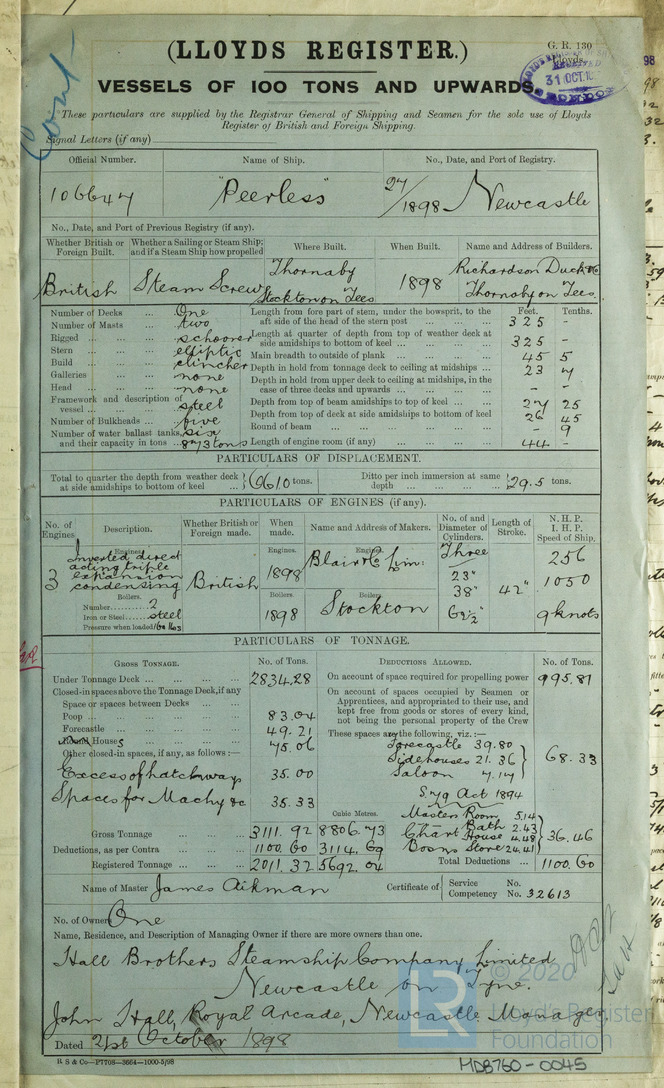 (LLOYDS REGISTER.)
G. R. 130
Lloyds.
VESSELS OF 100 TONS AND UPWARDS.
31 OCT.
These particulars are supplied by the Registrar General of Shipping and Seamen for the sole use of Lloyds
Register of British and Foreign Shipping.
Cont
Signal Letters (if any)
Official Number. Name of Ship. No., Date, and Port of Registry.
106647 "Peerless" 27/1898 Newcastle
No., Date, and Port of Previous Registry (if any).
Whether British or Foreign Built. Whether a Sailing or Steam Ship; and if a Steam Ship how propelled Where Built. When Built. Name and Address of Builders.
British Steam Screw Thornaby Stockton on Tees 1898 Richardson Duck & Co Thornaby on Tees.
Number of Decks ... One
Number of Masts ... two
Rigged ... schooner
Stern ... elliptic
Build ... clincher
Galleries ... none
Head ... none
Framework and description of vessel ... steel
Number of Bulkheads ... five
Number of water ballast tanks, six
and their capacity in tons ... 873 tons
Feet. Tenths.
Length from fore part of stem, under the bowsprit, to the aft side of the head of the stern post 325 -
Length at quarter of depth from top of weather deck at side amidships to bottom of keel 325 -
Main breadth to outside of plank 45 5
Depth in hold from tonnage deck to ceiling at midships 23 7
Depth in hold from upper deck to ceiling at midships, in the case of three decks and upwards - -
Depth from top of beam amidships to top of keel 27 25
Depth from top of deck at side amidships to bottom of keel 26 45
Round of beam - 9
Length of engine room (if any) 44 -
PARTICULARS OF DISPLACEMENT.
Total to quarter the depth from weather deck at side amidships to bottom of keel 6610 tons. Ditto per inch immersion at same depth 29.5 tons.
PARTICULARS OF ENGINES (if any).
No. of Engines. Description. Whether British or Foreign made. When made. Name and Address of Makers. No. of and Diameter of Cylinders. Length of Stroke. N. H. P. I. H. P. Speed of Ship.
3 Engines. Inverted direct acting triple expansion condensing British Engines. 1898 Engines. Blair & Co Lim: Three 23" 38" 62½" 42" 256 1050 9 knots
Boilers. Number 2
Iron or Steel steel
Pressure when loaded 160 lbs
Boilers. 1898 Boilers. Stockton
PARTICULARS OF TONNAGE.
GROSS TONNAGE. No. of Tons. DEDUCTIONS ALLOWED. No. of Tons.
Under Tonnage Deck 2834.28
Closed-in spaces above the Tonnage Deck, if any
Space or spaces between Decks
Poop 83.04
Forecastle 49.21
Houses 75.06
Other closed-in spaces, if any, as follows:—
Excess of hatchways 35.00
Spaces for Machy &c 35.33
Cubic Metres.
Gross Tonnage 3111.92 8806.73
Deductions, as per Contra 1100.60 3114.69
Registered Tonnage 2011.32 5692.04
On account of space required for propelling power 995.81
On account of spaces occupied by Seamen or Apprentices, and appropriated to their use, and kept free from goods or stores of every kind, not being the personal property of the Crew
These spaces are the following, viz.:—
Forecastle 39.80
Sidehouses 21.36
Saloon 7.17
68.33
S 79 Act 1894
Master Room 5.14
Bath 2.43
Chart House 4.48
Bosns Store 24.41
36.46
Total Deductions 1100.60
Name of Master James Aikman Certificate of Service No. Competency No. 32613
No. of Owners One
Name, Residence, and Description of Managing Owner if there are more owners than one.
Hall Brothers Steamship Company, Limited
Newcastle on Tyne.
John Hall, Royal Arcade, Newcastle Manager
Dated 21st October 1898
R S & Co—P7708—3664—1000-5/98
LR © 2020
Lloyd's Register
Foundation
HDB760-0045